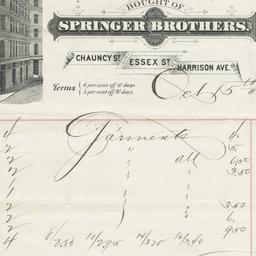 BOUGHT OF
SPRINGER BROTHERS,
CHAUNCY ST. ESSEX ST. HARRISON AVE.
Terms { 6 per cent off 10 days
5 per cent off 30 days. Oct 15th
4 Garments 4.
2 " 5.
2 " all 6.50
2 " " 3.50
1 " "
2 " " 3.50
2 " " 6.
2 9.50
4 8/2.50 10/2.95 14/3.25 16/3.40